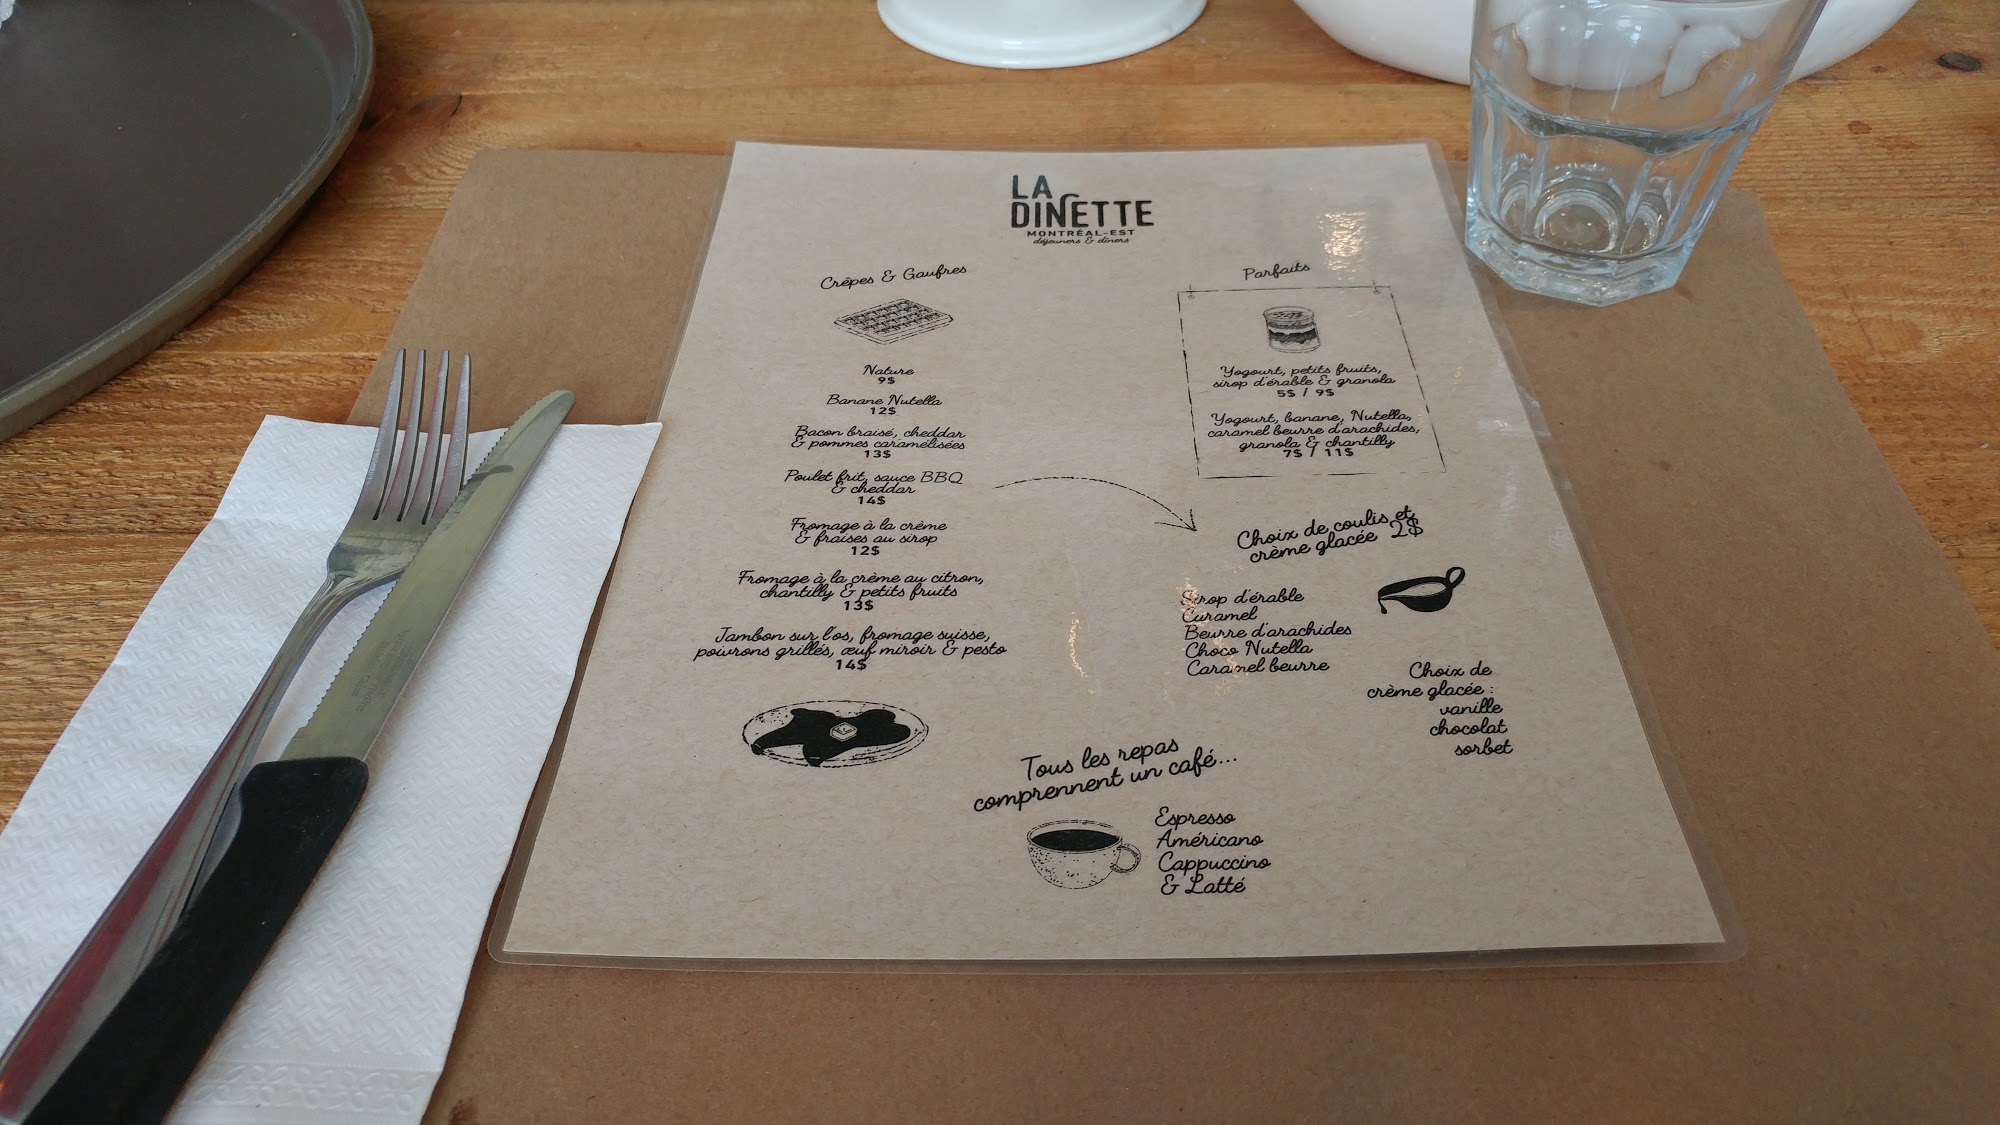 LA
DINETTE
MONTRÉAL-EST
déjeuners & dîners
Crêpes & Gaufres
Nature
9$
Banane Nutella
12$
Bacon braisé, cheddar
& pommes caramélisées
13$
Poulet frit, sauce BBQ
& cheddar
14$
Fromage à la crème
& fraises au sirop
12$
Fromage à la crème au citron,
chantilly & petits fruits
13$
Jambon sur l'os, fromage suisse,
poivrons grillés, œuf miroir & pesto
14$
Parfaits
Yogourt, petits fruits,
sirop d'érable & granola
5$ / 9$
Yogourt, banane, Nutella,
caramel beurre d'arachides,
granola & chantilly
7$ / 11$
Choix de coulis et
crème glacée 2$
Sirop d'érable
Caramel
Beurre d'arachides
Choco Nutella
Caramel beurre
Choix de
crème glacée :
vanille
chocolat
sorbet
Tous les repas
comprennent un café...
Espresso
Américano
Cappuccino
& Latté